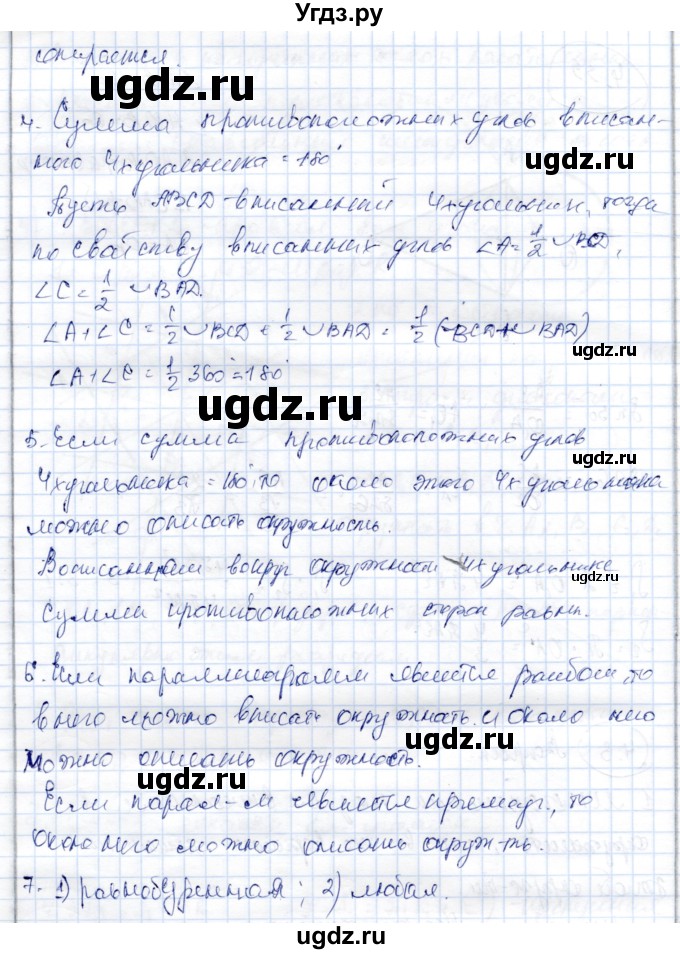 Угдз.ру
сопирается.
ugdz.ru
4. Сумма противоположных углов вписан-
ного 4хугольника = 180°
Пусть ABCD - вписанный 4хугольник, тогда
по свойству вписанных углов ∠A = 1/2 ◡BCD,
∠C = 1/2 ◡BAD.
ugdz.ru
∠A + ∠C = 1/2 ◡BCD + 1/2 ◡BAD = 1/2 (◡BCD + ◡BAD)
ugdz.ru
∠A + ∠C = 1/2 360° = 180°
ugdz.ru
5. Если сумма противоположных углов
4хугольника = 180°, то около этого 4хугольника
можно описать окружность.
вокруг окружности 4хугольнике
ugdz.ru
суммы противоположных сторон равны.
6. Если параллелограмм является ромбом, то
в него можно вписать окружность и около него
ugdz.ru
можно описать окружность.
Если парал-м является прямоуг., то
ugdz.ru
около него можно описать окруж-ть.
7. 1) равнобедренная; 2) любая.
ugdz.ru
ugdz.ru